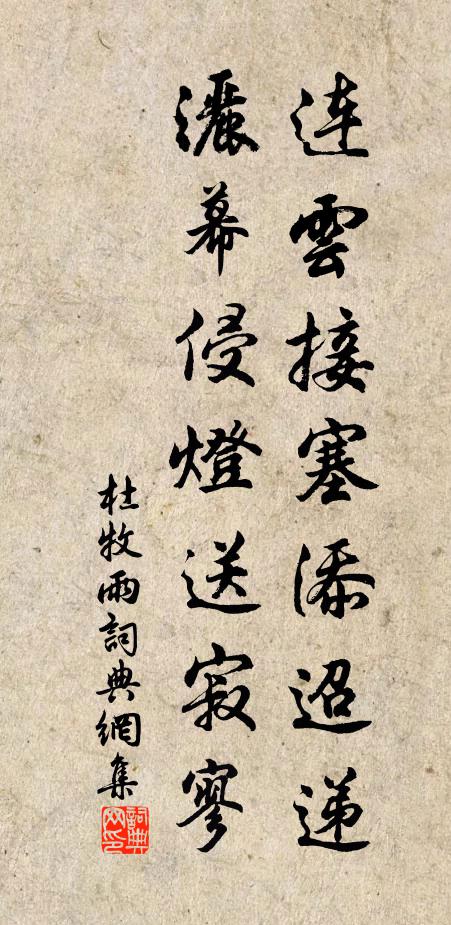 連雲接塞添迢遞
灑幕侵燈送寂寥
杜牧雨詞典網集
詞典网印